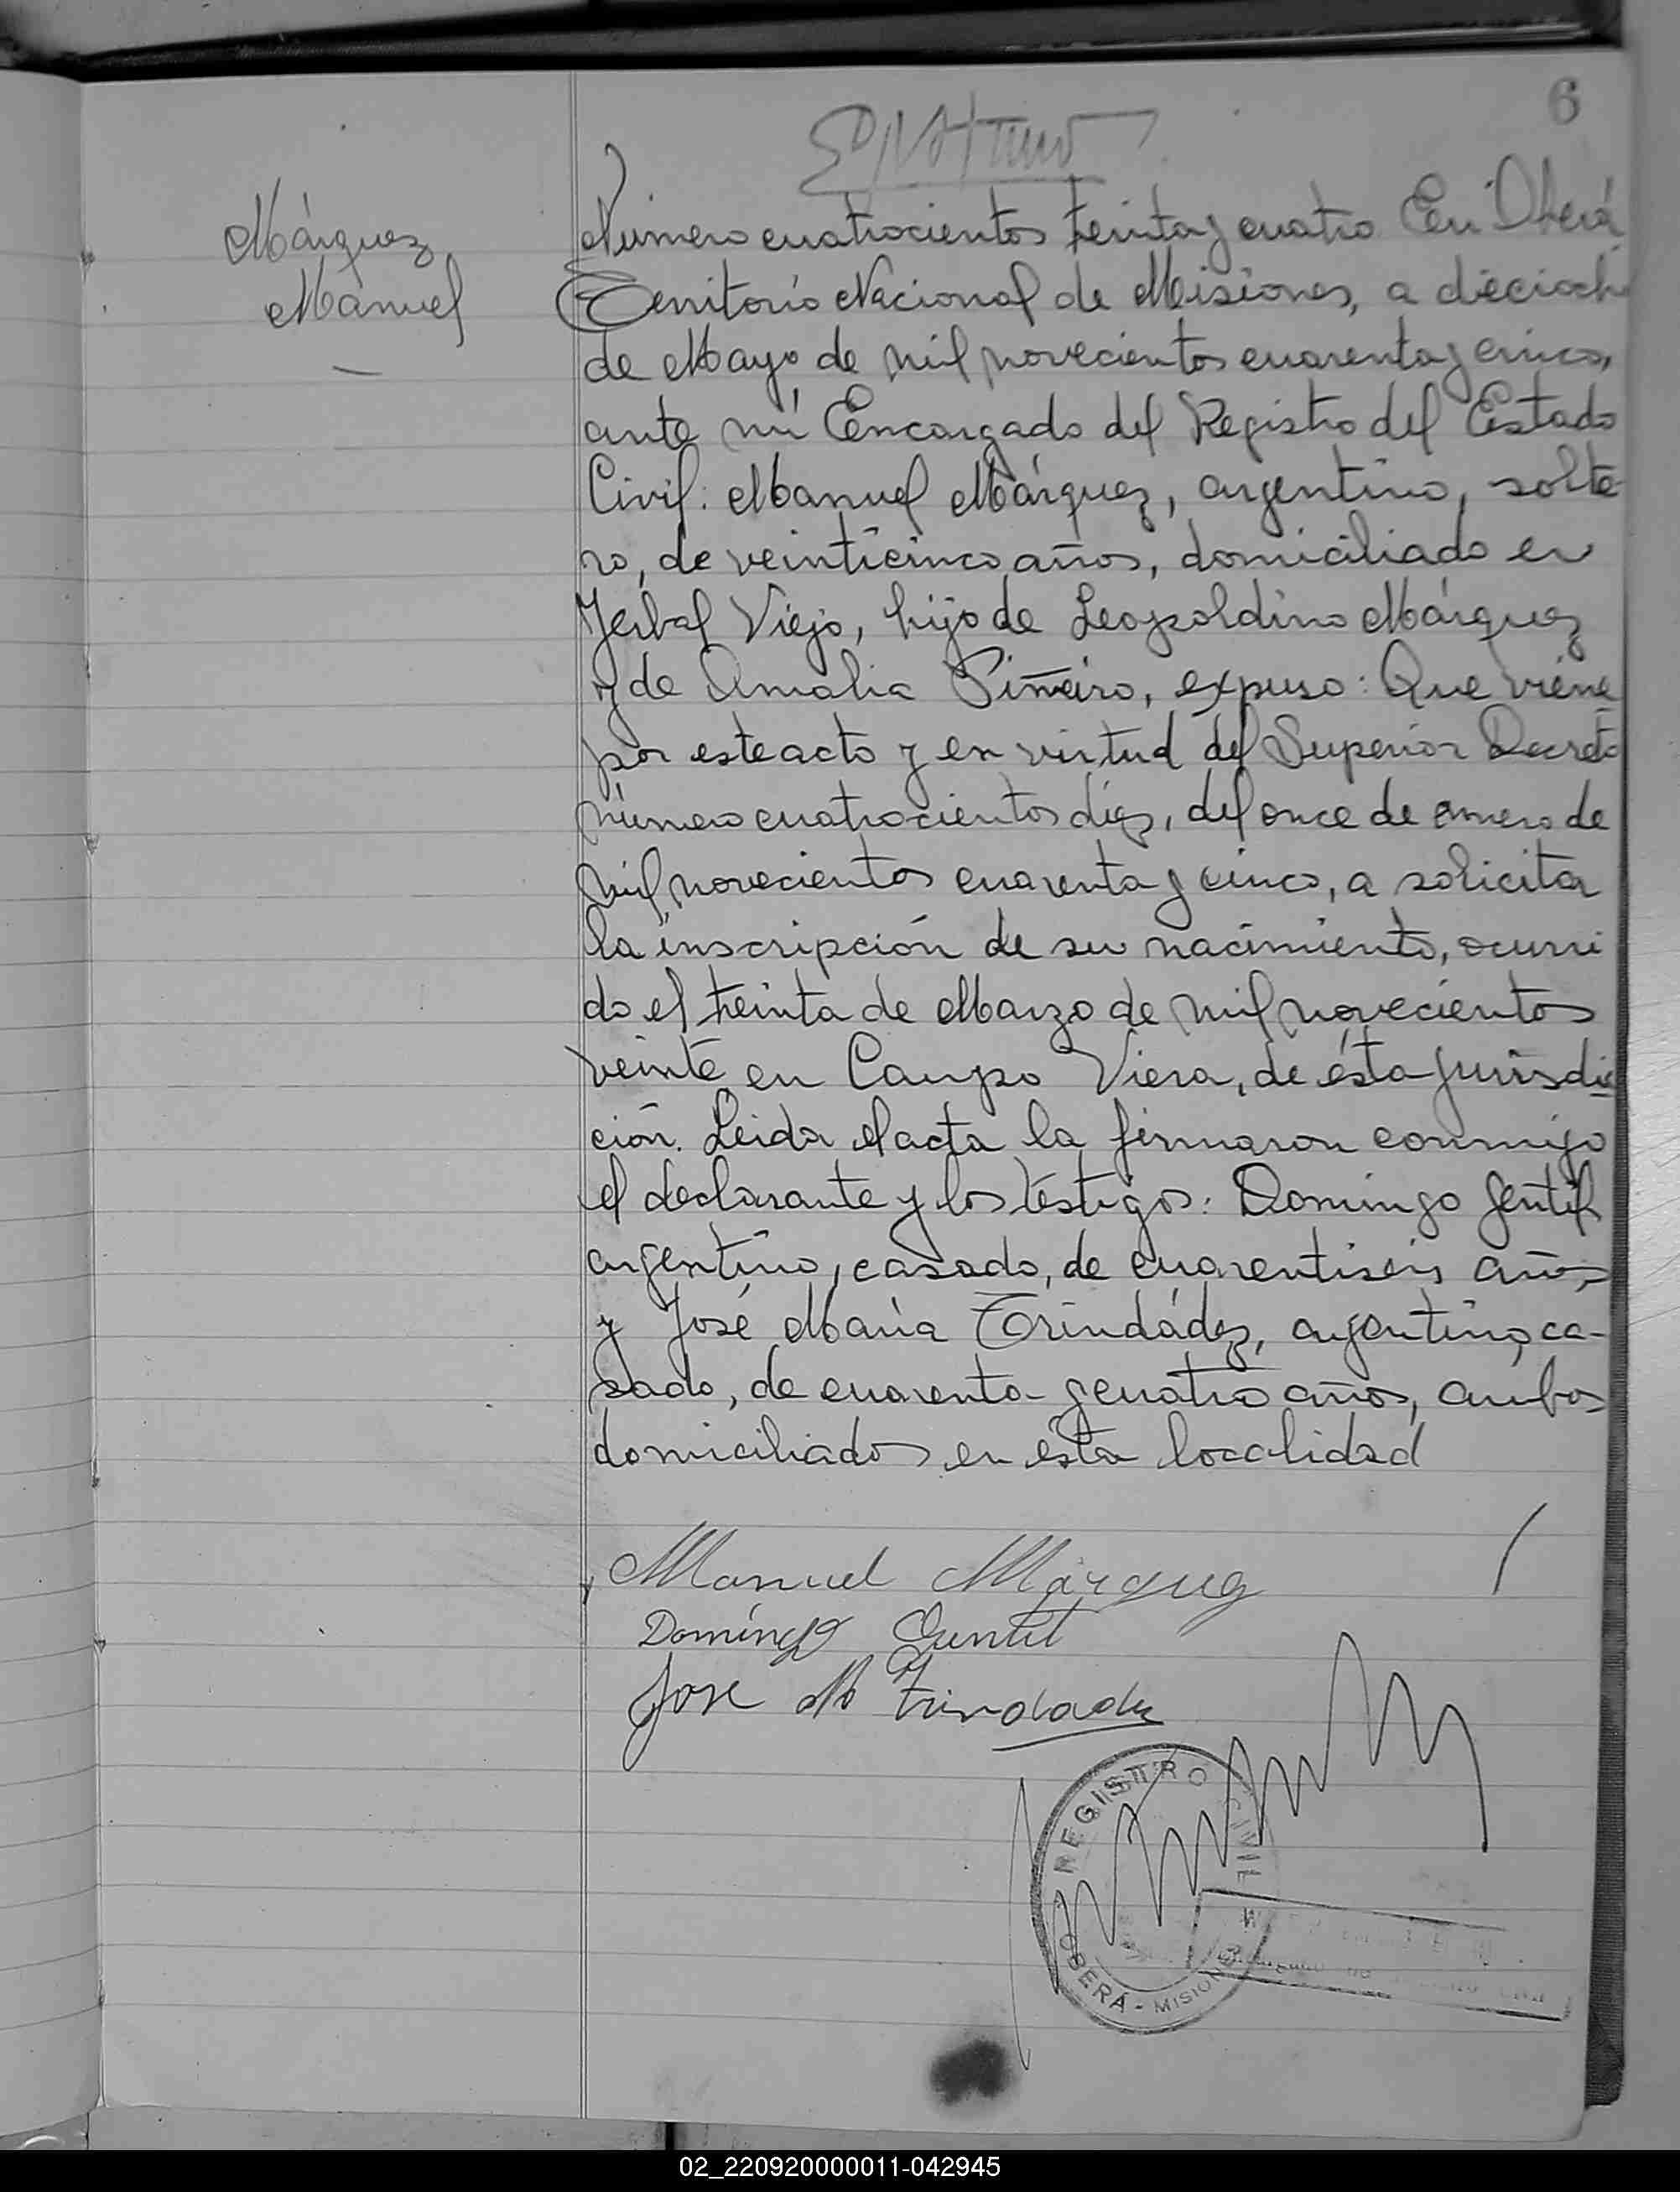 6
Márquez
Manuel
Número cuatrocientos treinta y cuatro En Oberá
Territorio Nacional de Misiones, a dieciocho
de Mayo de mil novecientos cuarenta y cinco,
ante mí Encargado del Registro del Estado
Civil: Manuel Márquez, argentino, solte-
ro, de veinticinco años, domiciliado en
Yerbal Viejo, hijo de Leopoldino Márquez
y de Amalia Piñeiro, expuso: Que viene
por este acto y en virtud del Superior Decreto
número cuatrocientos diez, del once de enero de
mil novecientos cuarenta y cinco, a solicitar
la inscripción de su nacimiento, ocurri
do el treinta de Marzo de mil novecientos
veinte en Campo Viera, de ésta jurisdic
ción. Leida el acta la firmaron conmigo
el declarante y los testigos: Domingo Gentil
argentino, casado, de cuarentiseis años,
y José María Trindádez, argentino, ca-
sado, de cuarenta y cuatro años, ambos
domiciliados en ésta localidad
Manuel Márquez
Domingo Gentil
Jose M Trindadez
REGISTRO CIVIL
OBERÁ - MISIONES
02_220920000011-042945